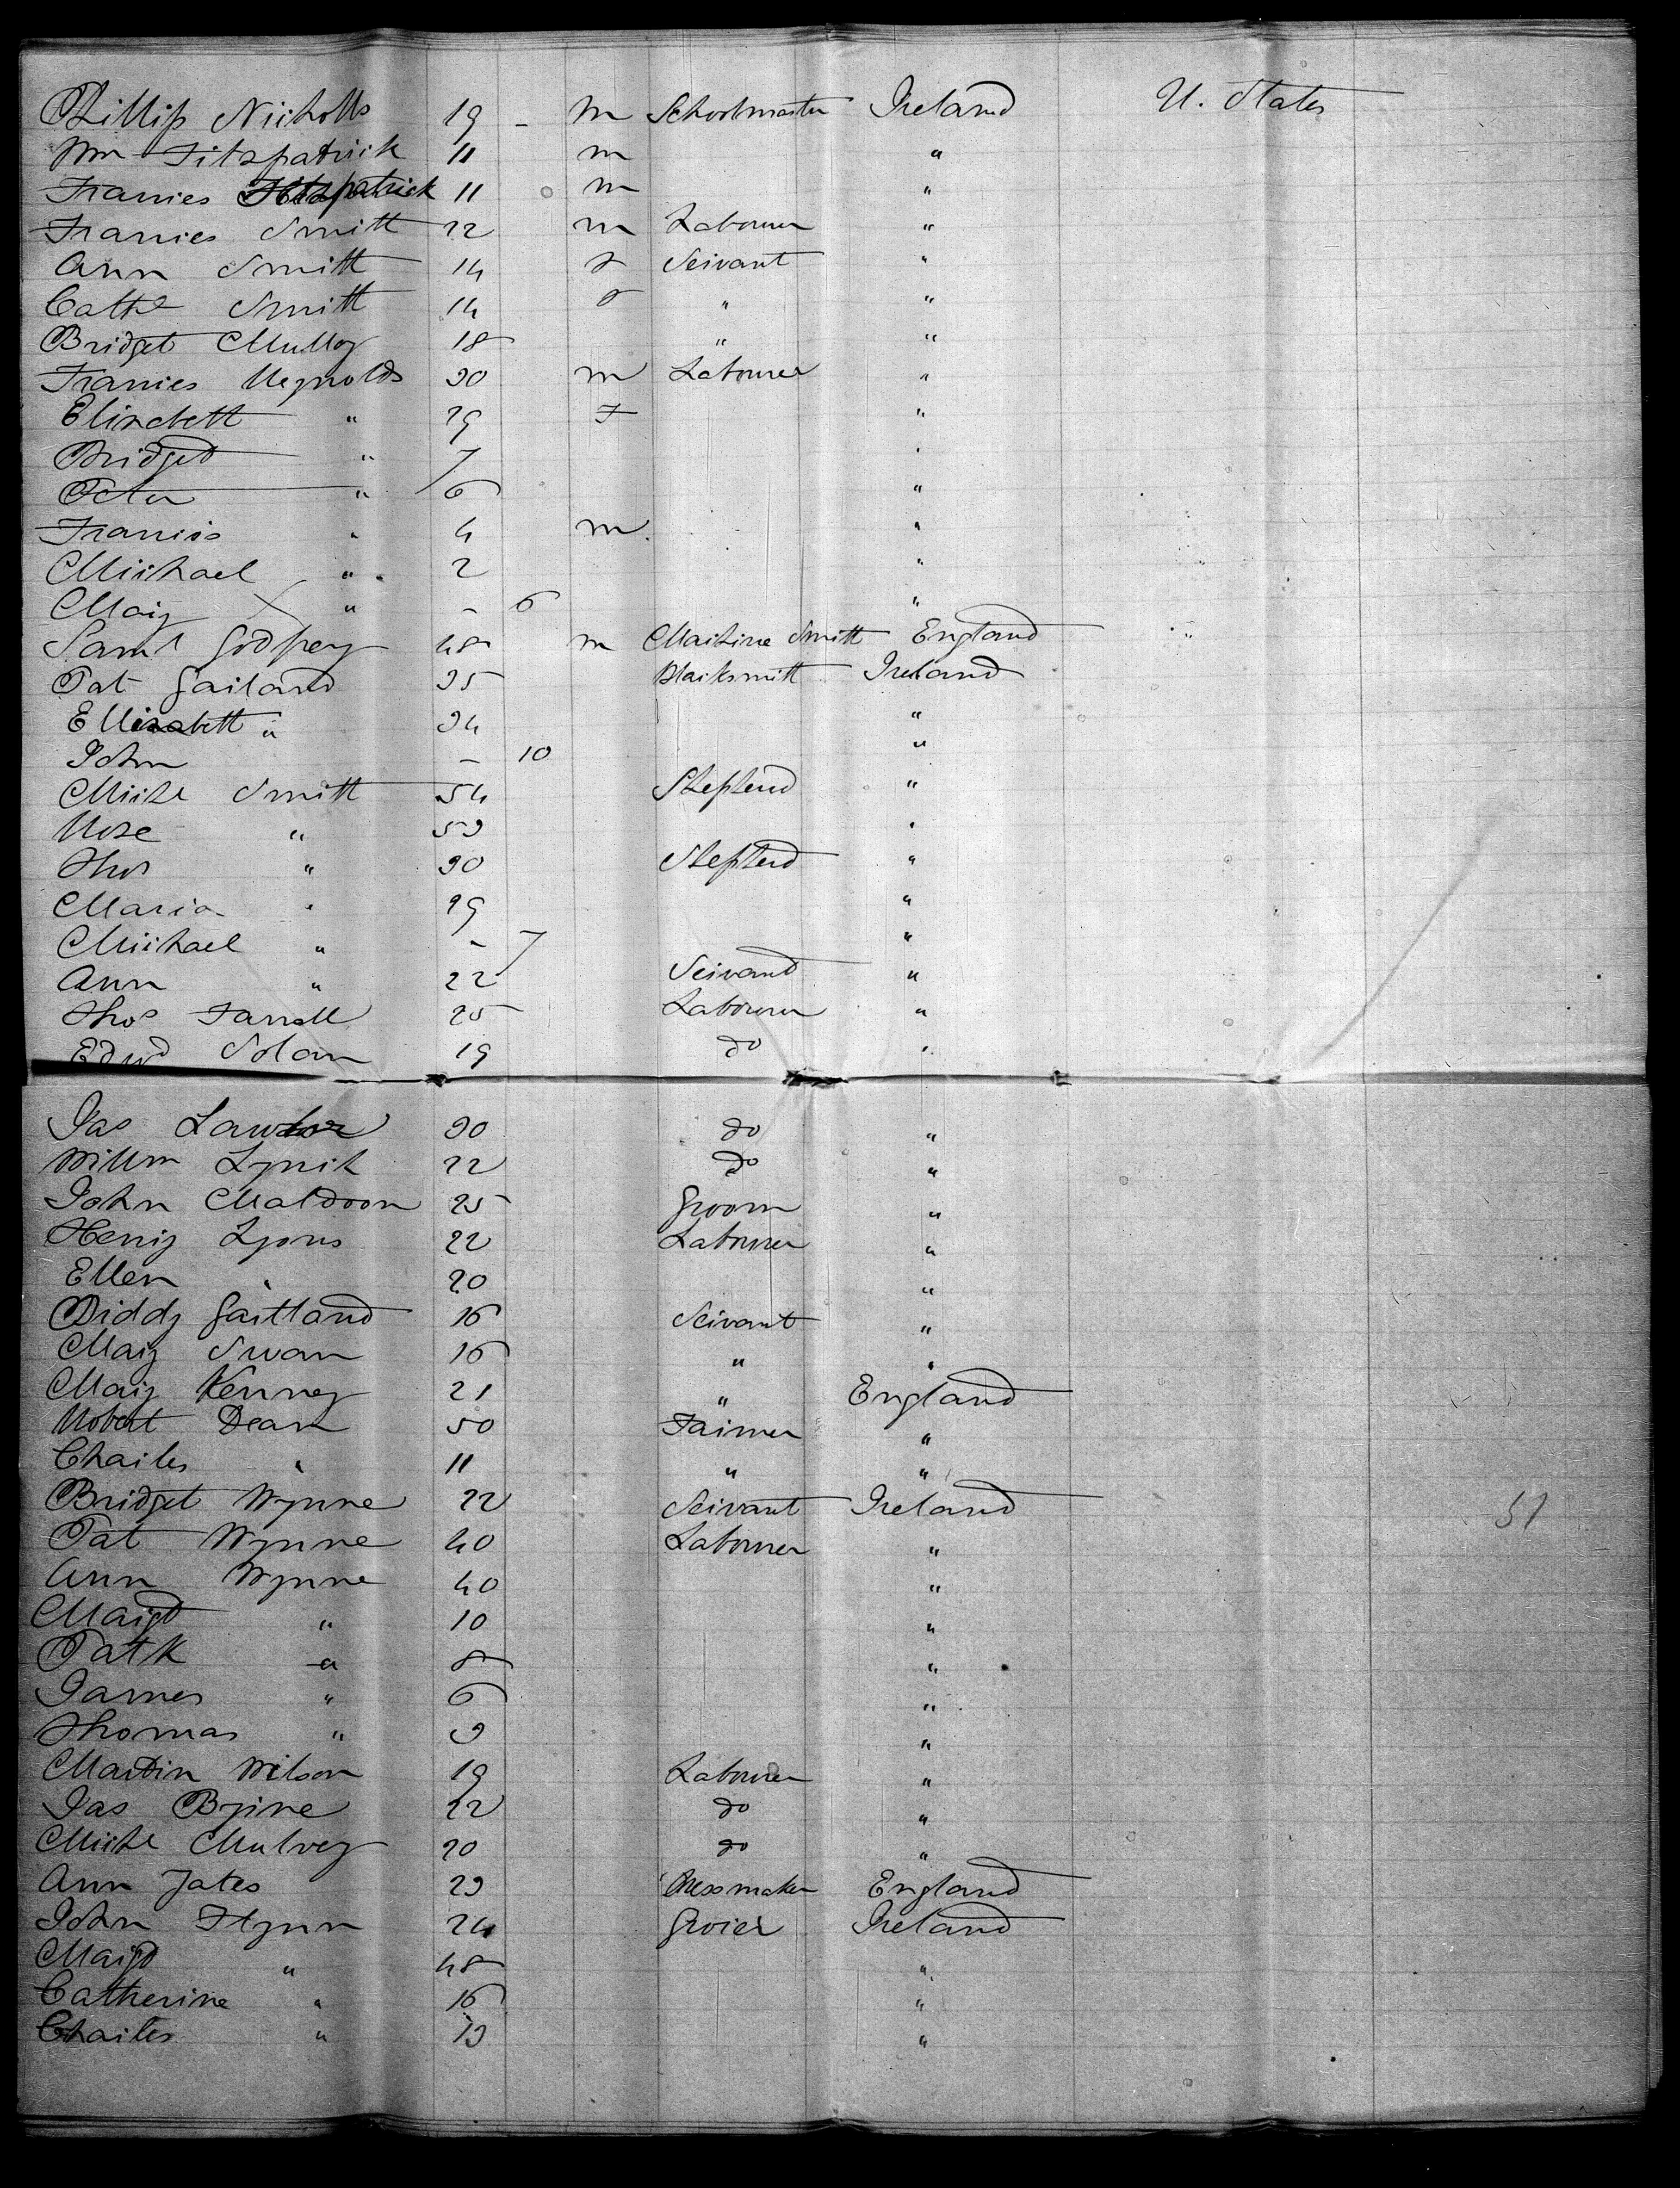 Phillip Nicholls 19 - m Schoolmaster Ireland U. States
Wm Fitzpatrick 11 m "
Francies Fitzpatrick 11 m "
Francies Smith 22 m Labourer "
Ann Smith 14 f Servant "
Cathe Smith 14 f " "
Bridget Mulloy 18 " "
Francies Reynolds 30 m Labourer "
Elizabeth " 29 F "
Bridget " 7 "
Peter " 6 "
Francis " 4 m "
Michael " 2 "
Mary " - 6 "
Saml Godfrey 48 m Machine Smith England
Pat Garland 35 Blacksmith Ireland
Ellizabeth " 34 "
John - 10 "
Michl Smith 54 Shepherd "
Rose " 53 "
Thos " 30 Shepherd "
Maria " 29 "
Michael " - 7 "
Ann " 22 Servant "
Thos Farrell 25 Labourer "
Edwd Nolan 19 do "
Jas Lawlor 30 do "
Willm Lynch 22 do "
John Maldoon 25 Groom "
Henry Lyons 22 Labourer "
Ellen " 20 "
Biddy Gartland 16 Servant "
Mary Swan 16 " "
Mary Kenney 21 " England
Robert Dean 50 Farmer "
Charles " 11 " "
Bridget Wynne 22 Servant Ireland
51
Pat Wynne 40 Labourer "
Ann Wynne 40 "
Margt " 10 "
Patk " 8 "
James " 6 "
Thomas " 3 "
Martin Wilson 19 Labourer "
Jas Byrne 22 do "
Michl Mulvey 20 do "
Ann Yates 23 Dressmaker England
John Flynn 24 Grocer Ireland
Margt " 48 "
Catherine " 16 "
Charles " 13 "